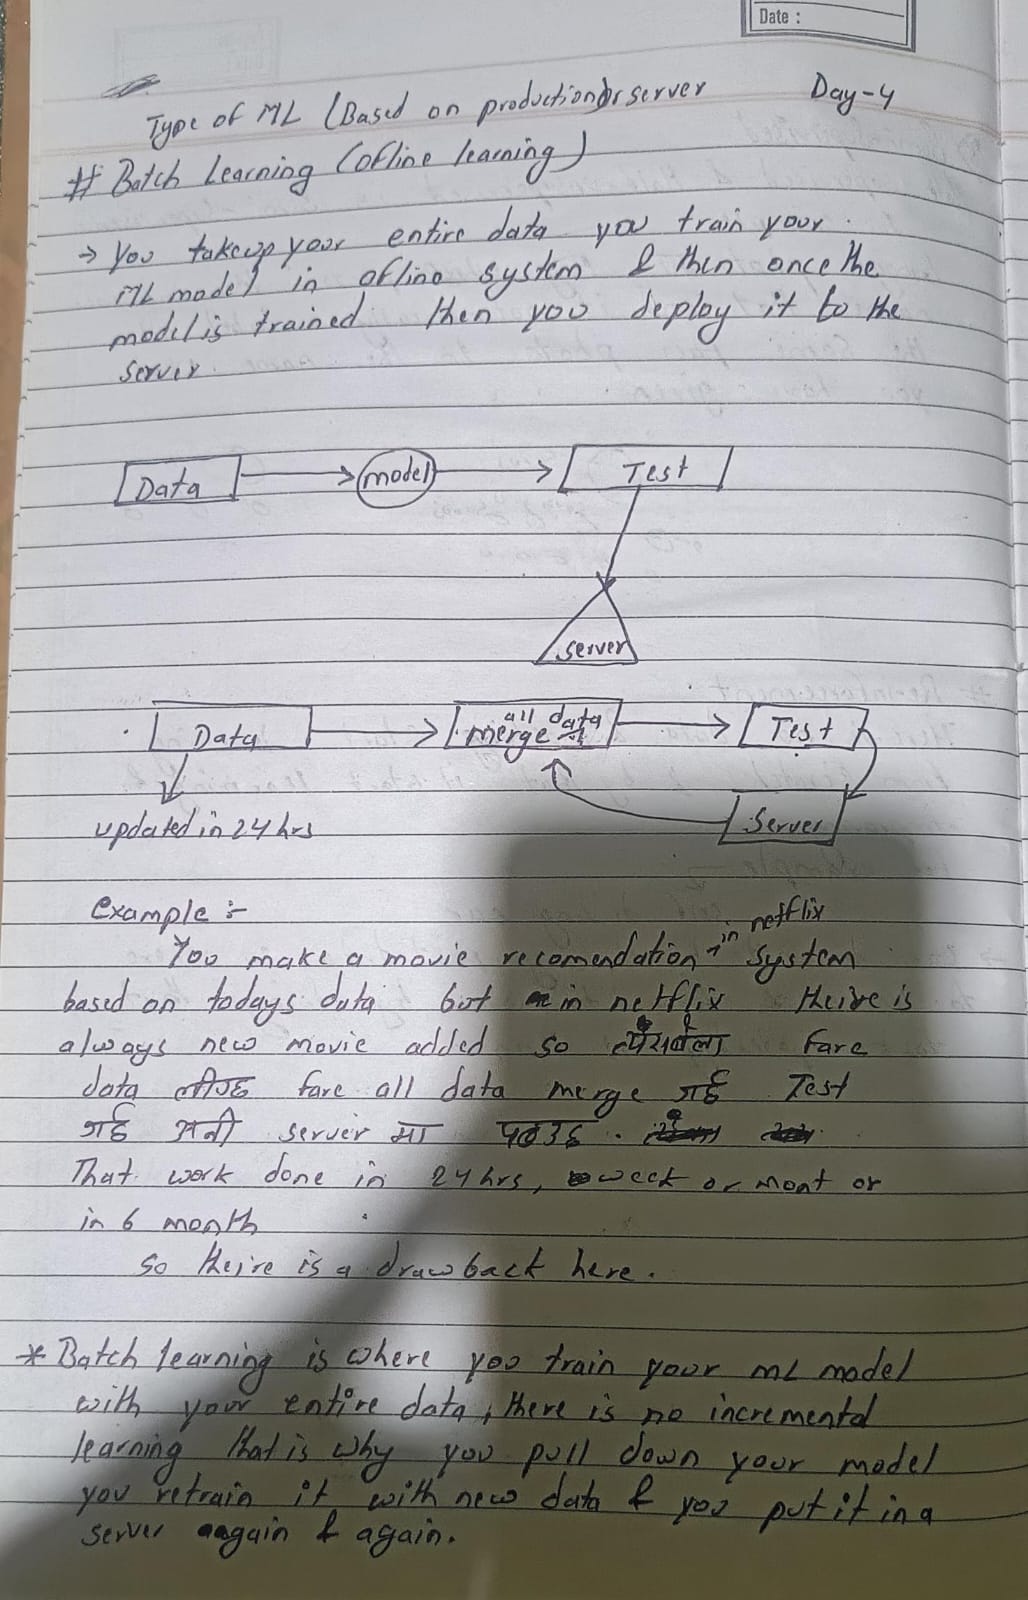 Date :
Day-4
Type of ML (Based on production or server
# Batch Learning (ofline learning)
→ You takeup your entire data you train your
ML model in ofline system & then once the
model is trained then you deploy it to the
server.
Data → model → Test
server
Data → all data merge → Test
Server
updated in 24 hrs
Example :-
in netflix
You make a movie recomendation system
based on todays data but in netflix theire is
always new movie added so fare
data fare all data merge गई Test
गई अनी server मा पठउई.
That work done in 24 hrs, week or mont or
in 6 month
so theire is a drawback here.
* Batch learning is where you train your ML model
with your entire data, there is no incremental
learning that is why you pull down your model
you retrain it with new data & you put it in a
server again & again.